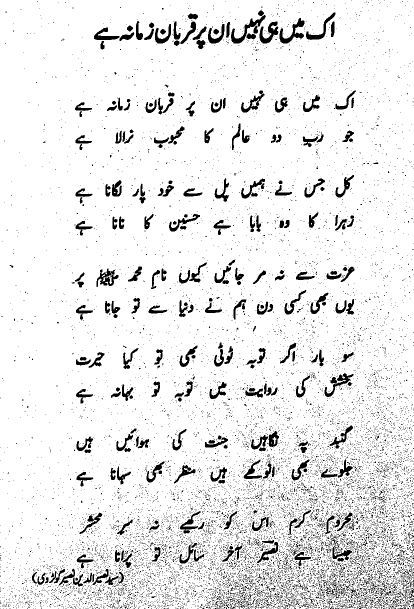 اک میں ہی نہیں ان پر قربان زمانہ ہے
اک میں ہی نہیں ان پر قربان زمانہ ہے
جو رب دو عالم کا محبوب نرالا ہے
کل جس نے ہمیں پل سے خود پار لگانا ہے
زہرا کا وہ بابا ہے حسنین کا نانا ہے
عزت سے نہ مر جائیں کیوں نام محمد ﷺ پر
یوں بھی کسی دن ہم نے دنیا سے تو جانا ہے
سو بار اگر توبہ ٹوٹی بھی تو کیا حیرت
بخشش کی روایت میں توبہ تو بہانہ ہے
گنبد پہ نگاہیں جنت کی ہوائیں ہیں
جلوے بھی انوکھے ہیں منظر بھی سہانا ہے
محروم کرم اس کو رکھیے نہ سرِ محشر
جیسا ہے نصیر آخر سائل تو پرانا ہے
(سید نصیر الدین نصیر گولڑوی)